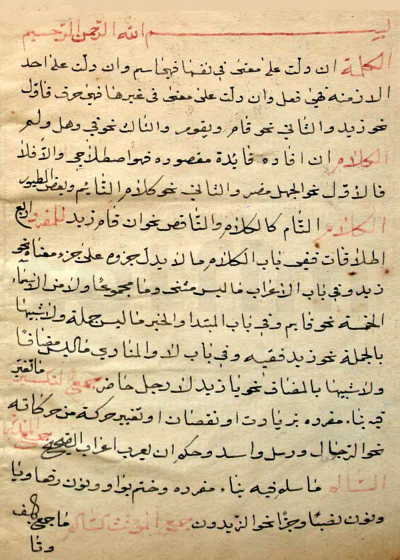 بسم الله الرحمن الرحيم
الكلمة ان دلت على معنى في نفسها فهي اسم وان دلت على احد
الازمنة فهي فعل وان دلت على معنى في غيرها فهي حرف فالاول
نحو زيد والثاني نحو قام ويقوم والثالث نحو في وهل ولم
الكلام ان افاده فايدة مقصوده فهو اصطلاحي والافلا
فالاول نحو الجمل مصر والثاني نحو كلام النايم وبعض الطيور
الكلام التام كالكلام والناقص نحو ان قام زيد للمفرد اربع
اطلاقات ففي باب الكلام ما لا يدل جزوه على جزء معناه نحو
زيد وفي باب الاعراب ما ليس مثنى وما مجموعا ولا من الاسماء
الخمسة نحو قايم وفي باب المبتدا والخبر ما ليس جملة ولا شبيها
بالجملة نحو زيد فقيه وفي باب لا والمنادي ما ليس مضافا
ولا شبيها بالمضاف نحو يا زيد لا رجل حاضر جمع التكسير ما تغير
فيه بناء مفرده بزيادت او نقصان او تغيير حركة من حركاته
نحو الرجال ورسل واسد وحكمه ان يعرب اعراب الصحيح جمع المذكر
السالم ما سلم فيه بناء مفرده وختم بواو ونون رفعا ويا
ونون نصبا وجرا نحو الزيدون جمع المونث السالم ما جمع بالف
وتا